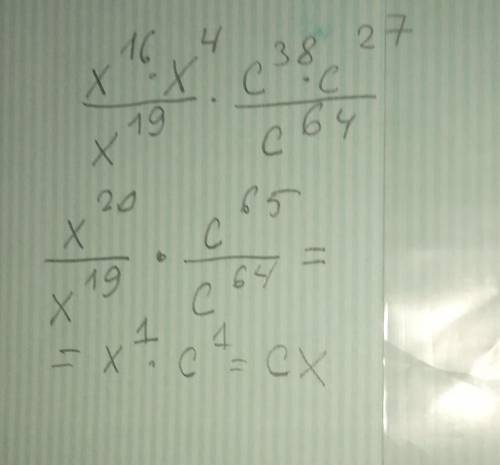 x^16 · x^4 / x^19 · c^38 · c^27 / c^64
x^20 / x^19 · c^65 / c^64 =
= x^1 · c^1 = cx